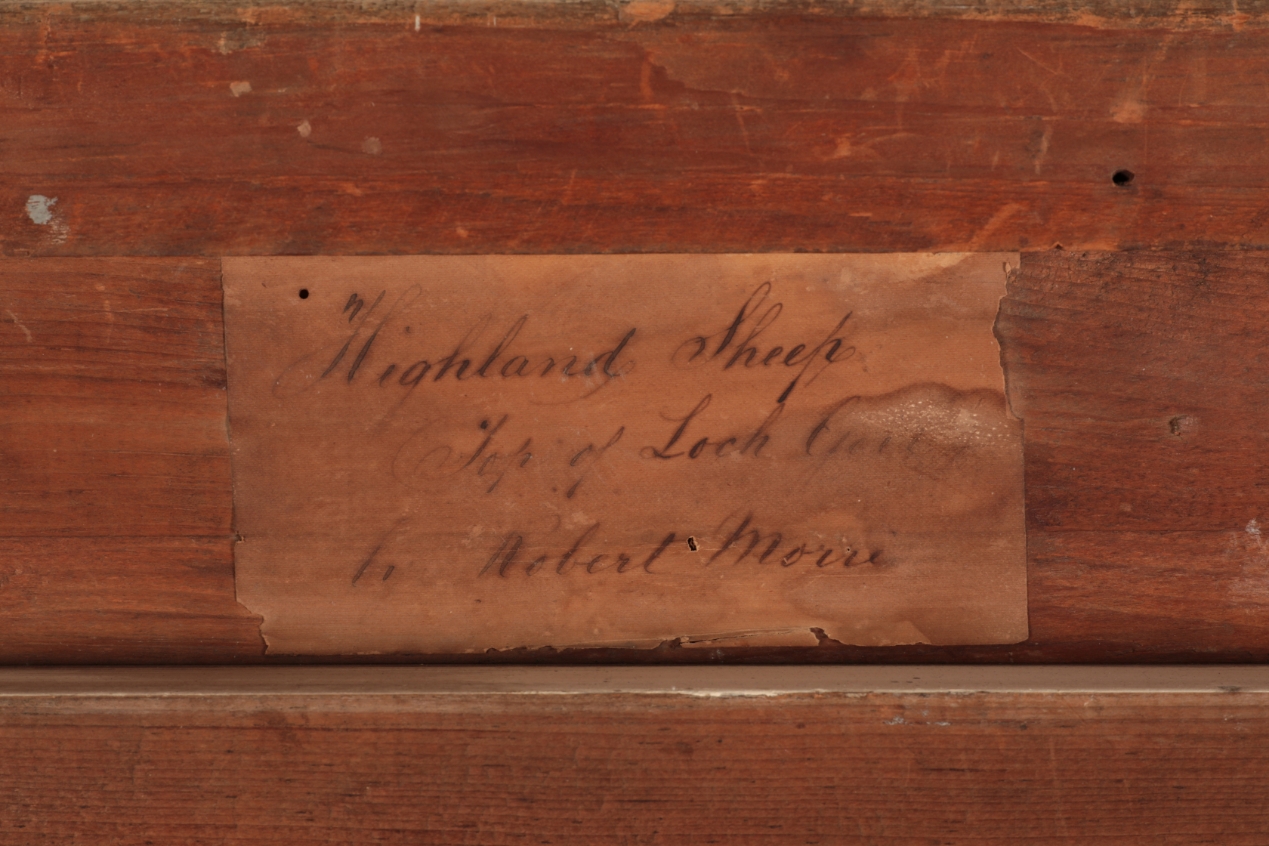 Highland Sheep
Top of Loch
by Robert Morris